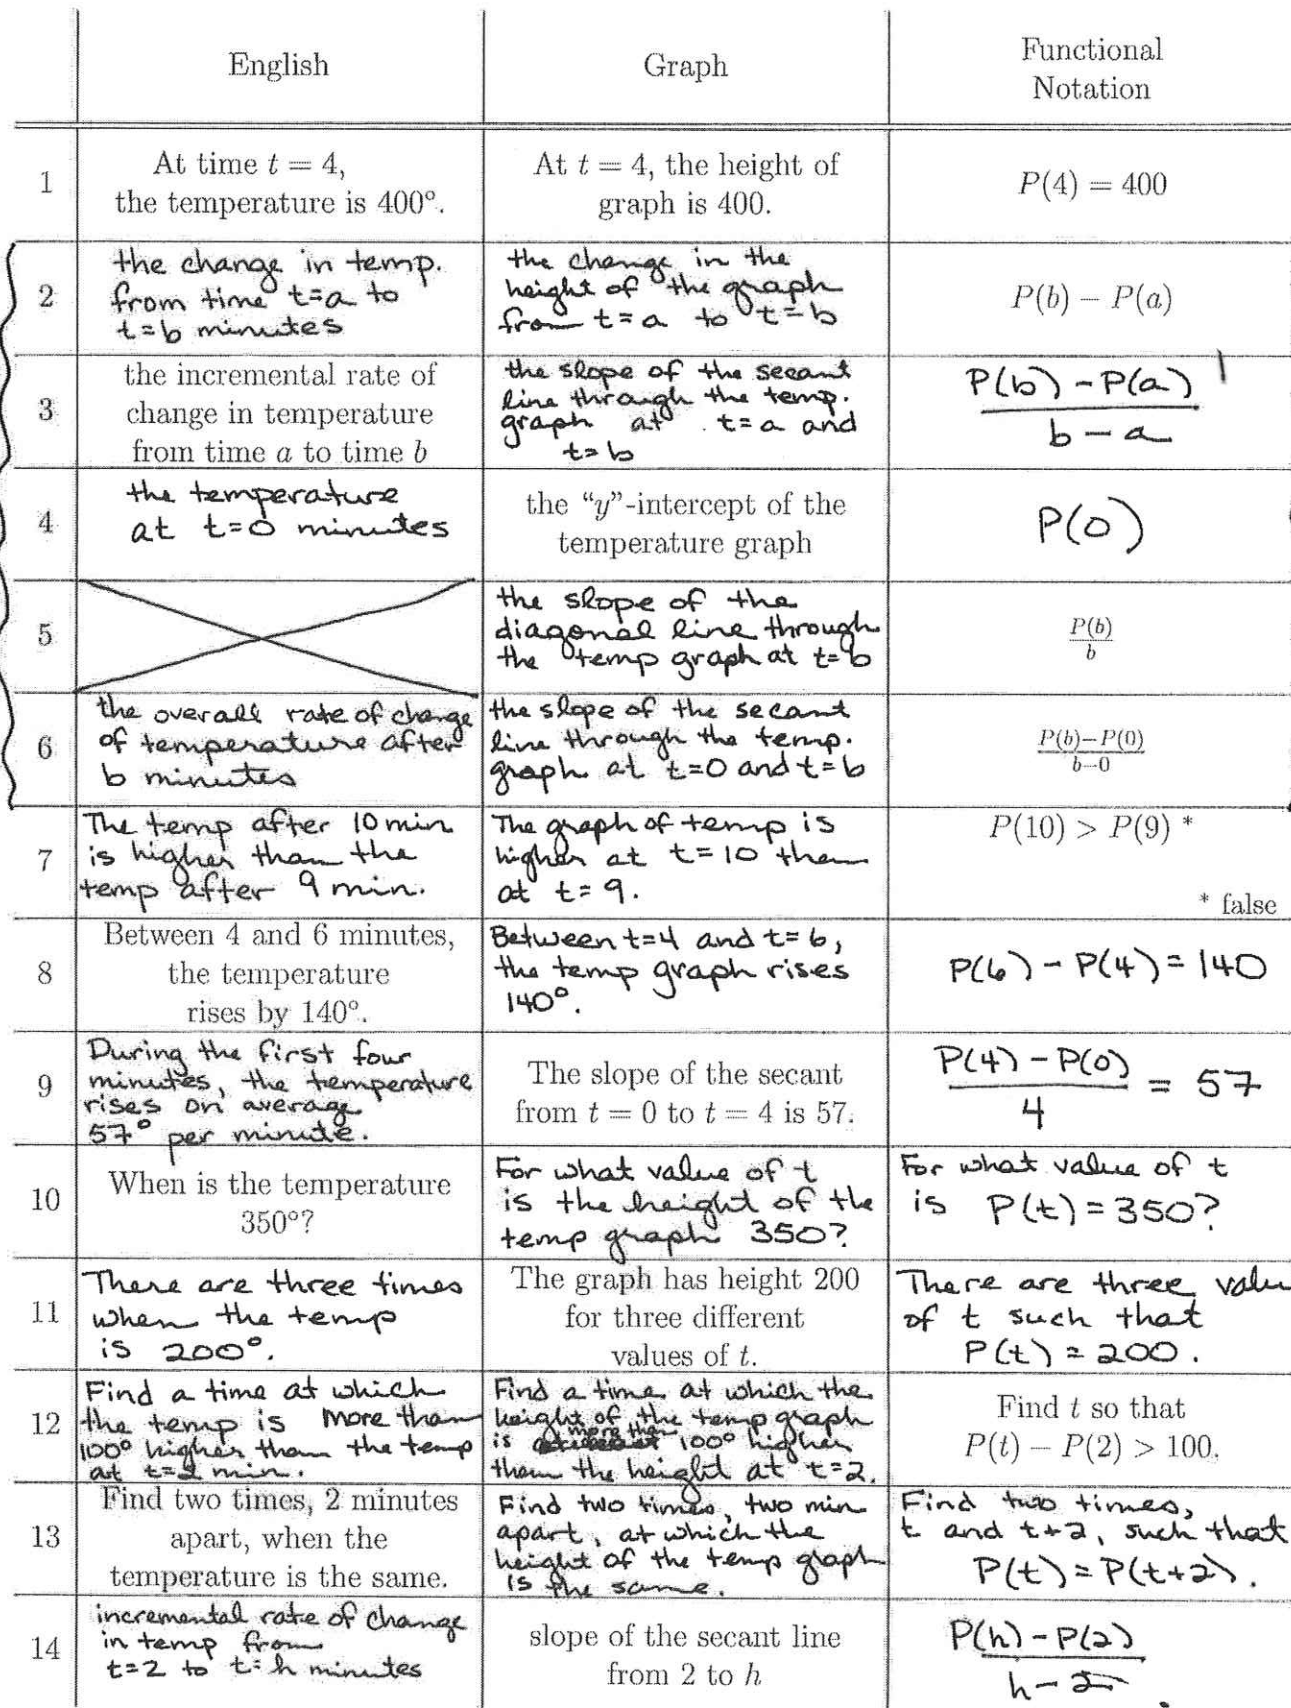 English
Graph
Functional
Notation
1
At time t = 4,
the temperature is 400°.
At t = 4, the height of
graph is 400.
P(4) = 400
2
the change in temp.
from time t=a to
t=b minutes
the change in the
height of the graph
from t=a to t=b
P(b) − P(a)
3
the incremental rate of
change in temperature
from time a to time b
the slope of the secant
line through the temp.
graph at t=a and
t=b
P(b) - P(a)
b - a
4
the temperature
at t=0 minutes
the "y"-intercept of the
temperature graph
P(0)
5
the slope of the
diagonal line through
the temp graph at t=b
P(b)
b
6
the overall rate of change
of temperature after
b minutes
the slope of the secant
line through the temp.
graph at t=0 and t=b
P(b)−P(0)
b−0
7
The temp after 10 min
is higher than the
temp after 9 min.
The graph of temp is
higher at t=10 than
at t=9.
P(10) > P(9) *
* false
8
Between 4 and 6 minutes,
the temperature
rises by 140°.
Between t=4 and t=6,
the temp graph rises
140°.
P(6) - P(4) = 140
9
During the first four
minutes, the temperature
rises on average
57° per minute.
The slope of the secant
from t = 0 to t = 4 is 57.
P(4) - P(0)
4
= 57
10
When is the temperature
350°?
For what value of t
is the height of the
temp graph 350?
For what value of t
is P(t) = 350?
11
There are three times
when the temp
is 200°.
The graph has height 200
for three different
values of t.
There are three valu
of t such that
P(t) = 200.
12
Find a time at which
the temp is more than
100° higher than the temp
at t=2 min.
Find a time at which the
height of the temp graph
is more than 100° higher
than the height at t=2.
Find t so that
P(t) − P(2) > 100.
13
Find two times, 2 minutes
apart, when the
temperature is the same.
Find two times, two min
apart, at which the
height of the temp graph
is the same.
Find two times,
t and t+2, such that
P(t) = P(t+2).
14
incremental rate of change
in temp from
t=2 to t=h minutes
slope of the secant line
from 2 to h
P(h) - P(2)
h - 2